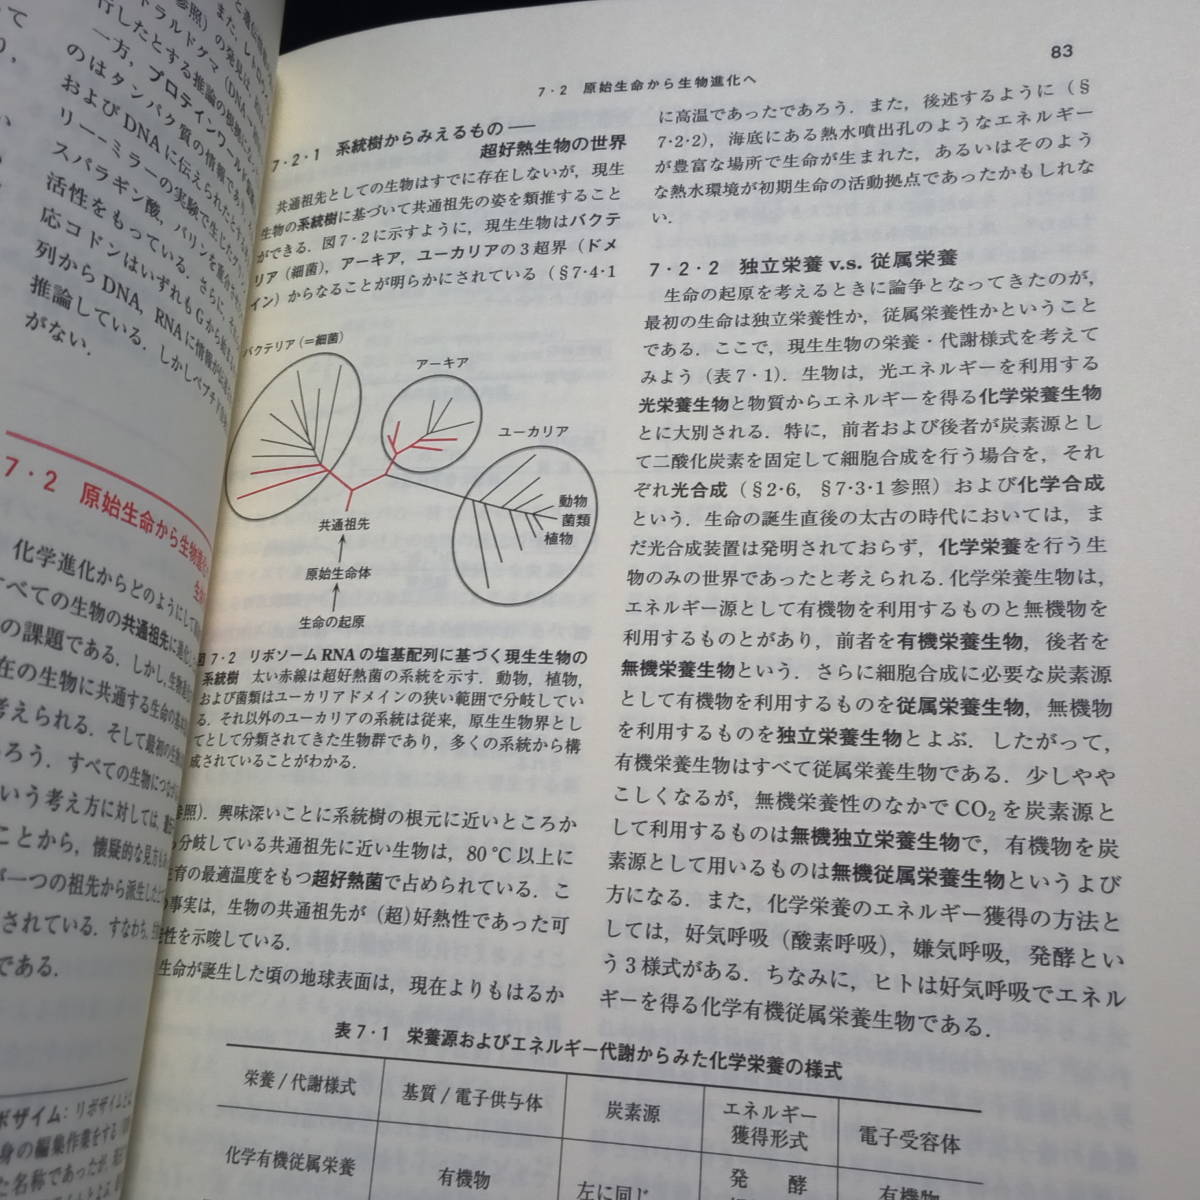 83
7・2 原始生命から生物進化へ
7・2・1 系統樹からみえるもの――
超好熱生物の世界
共通祖先としての生物はすでに存在しないが，現生
生物の系統樹に基づいて共通祖先の姿を類推すること
ができる．図7・2に示すように，現生生物はバクテ
リア（細菌），アーキア，ユーカリアの3超界（ドメ
イン）からなることが明らかにされている（§7・4・1
バクテリア（＝細菌）
アーキア
ユーカリア
動物
菌類
植物
共通祖先
原始生命体
生命の起原
図7・2 リボソームRNAの塩基配列に基づく現生生物の
系統樹 太い赤線は超好熱菌の系統を示す．動物，植物，
および菌類はユーカリアドメインの狭い範囲で分岐してい
る．それ以外のユーカリアの系統は従来，原生生物界とし
てとして分類されてきた生物群であり，多くの系統から構
成されていることがわかる．
参照）．興味深いことに系統樹の根元に近いところか
分岐している共通祖先に近い生物は，80℃以上に
育の最適温度をもつ超好熱菌で占められている．こ
事実は，生物の共通祖先が（超）好熱性であった可
性を示唆している．
生命が誕生した頃の地球表面は，現在よりもはるか
に高温であったであろう．また，後述するように（§
7・2・2），海底にある熱水噴出孔のようなエネルギー
が豊富な場所で生命が生まれた，あるいはそのよう
な熱水環境が初期生命の活動拠点であったかもしれな
い．
7・2・2 独立栄養 v.s. 従属栄養
生命の起原を考えるときに論争となってきたのが，
最初の生命は独立栄養性か，従属栄養性かということ
である．ここで，現生生物の栄養・代謝様式を考えて
みよう（表7・1）．生物は，光エネルギーを利用する
光栄養生物と物質からエネルギーを得る化学栄養生物
とに大別される．特に，前者および後者が炭素源とし
て二酸化炭素を固定して細胞合成を行う場合を，それ
ぞれ光合成（§2・6，§7・3・1参照）および化学合成
という．生命の誕生直後の太古の時代においては，ま
だ光合成装置は発明されておらず，化学栄養を行う生
物のみの世界であったと考えられる．化学栄養生物は，
エネルギー源として有機物を利用するものと無機物を
利用するものとがあり，前者を有機栄養生物，後者を
無機栄養生物という．さらに細胞合成に必要な炭素源
として有機物を利用するものを従属栄養生物，無機物
を利用するものを独立栄養生物とよぶ．したがって，
有機栄養生物はすべて従属栄養生物である．少しやや
こしくなるが，無機栄養性のなかでCO₂を炭素源と
して利用するものは無機独立栄養生物で，有機物を炭
素源として用いるものは無機従属栄養生物というよび
方になる．また，化学栄養のエネルギー獲得の方法と
しては，好気呼吸（酸素呼吸），嫌気呼吸，発酵とい
う3様式がある．ちなみに，ヒトは好気呼吸でエネル
ギーを得る化学有機従属栄養生物である．
表7・1 栄養源およびエネルギー代謝からみた化学栄養の様式
栄養/代謝様式 基質/電子供与体 炭素源 エネルギー獲得形式 電子受容体
化学有機従属栄養 有機物 左に同じ 発酵 有機物
一方，プロテインワールド
のはタンパク質の情報であり
およびDNAに伝えられたとする
リーミラーの実験で生じたグリ
スパラギン酸，バリンを重合
活性をもっている．さらに，
応コドンはいずれもGから始ま
列からDNA，RNAに情報が
推論している．しかしペプチド
がない．
7・2 原始生命から生物進化
化学進化からどのようにして
すべての生物の共通祖先に進化し
の課題である．しかし，生物進
在の生物に共通する生命の基本
考えられる．そして最初の生物
ろう．すべての生物につなが
いう考え方に対しては，
ことから，懐疑的な見方も
が一つの祖先から派生した
されている．すなわち，
である．
ボザイム：リボザイムとは
身の編集作業をする
た名称であったが，